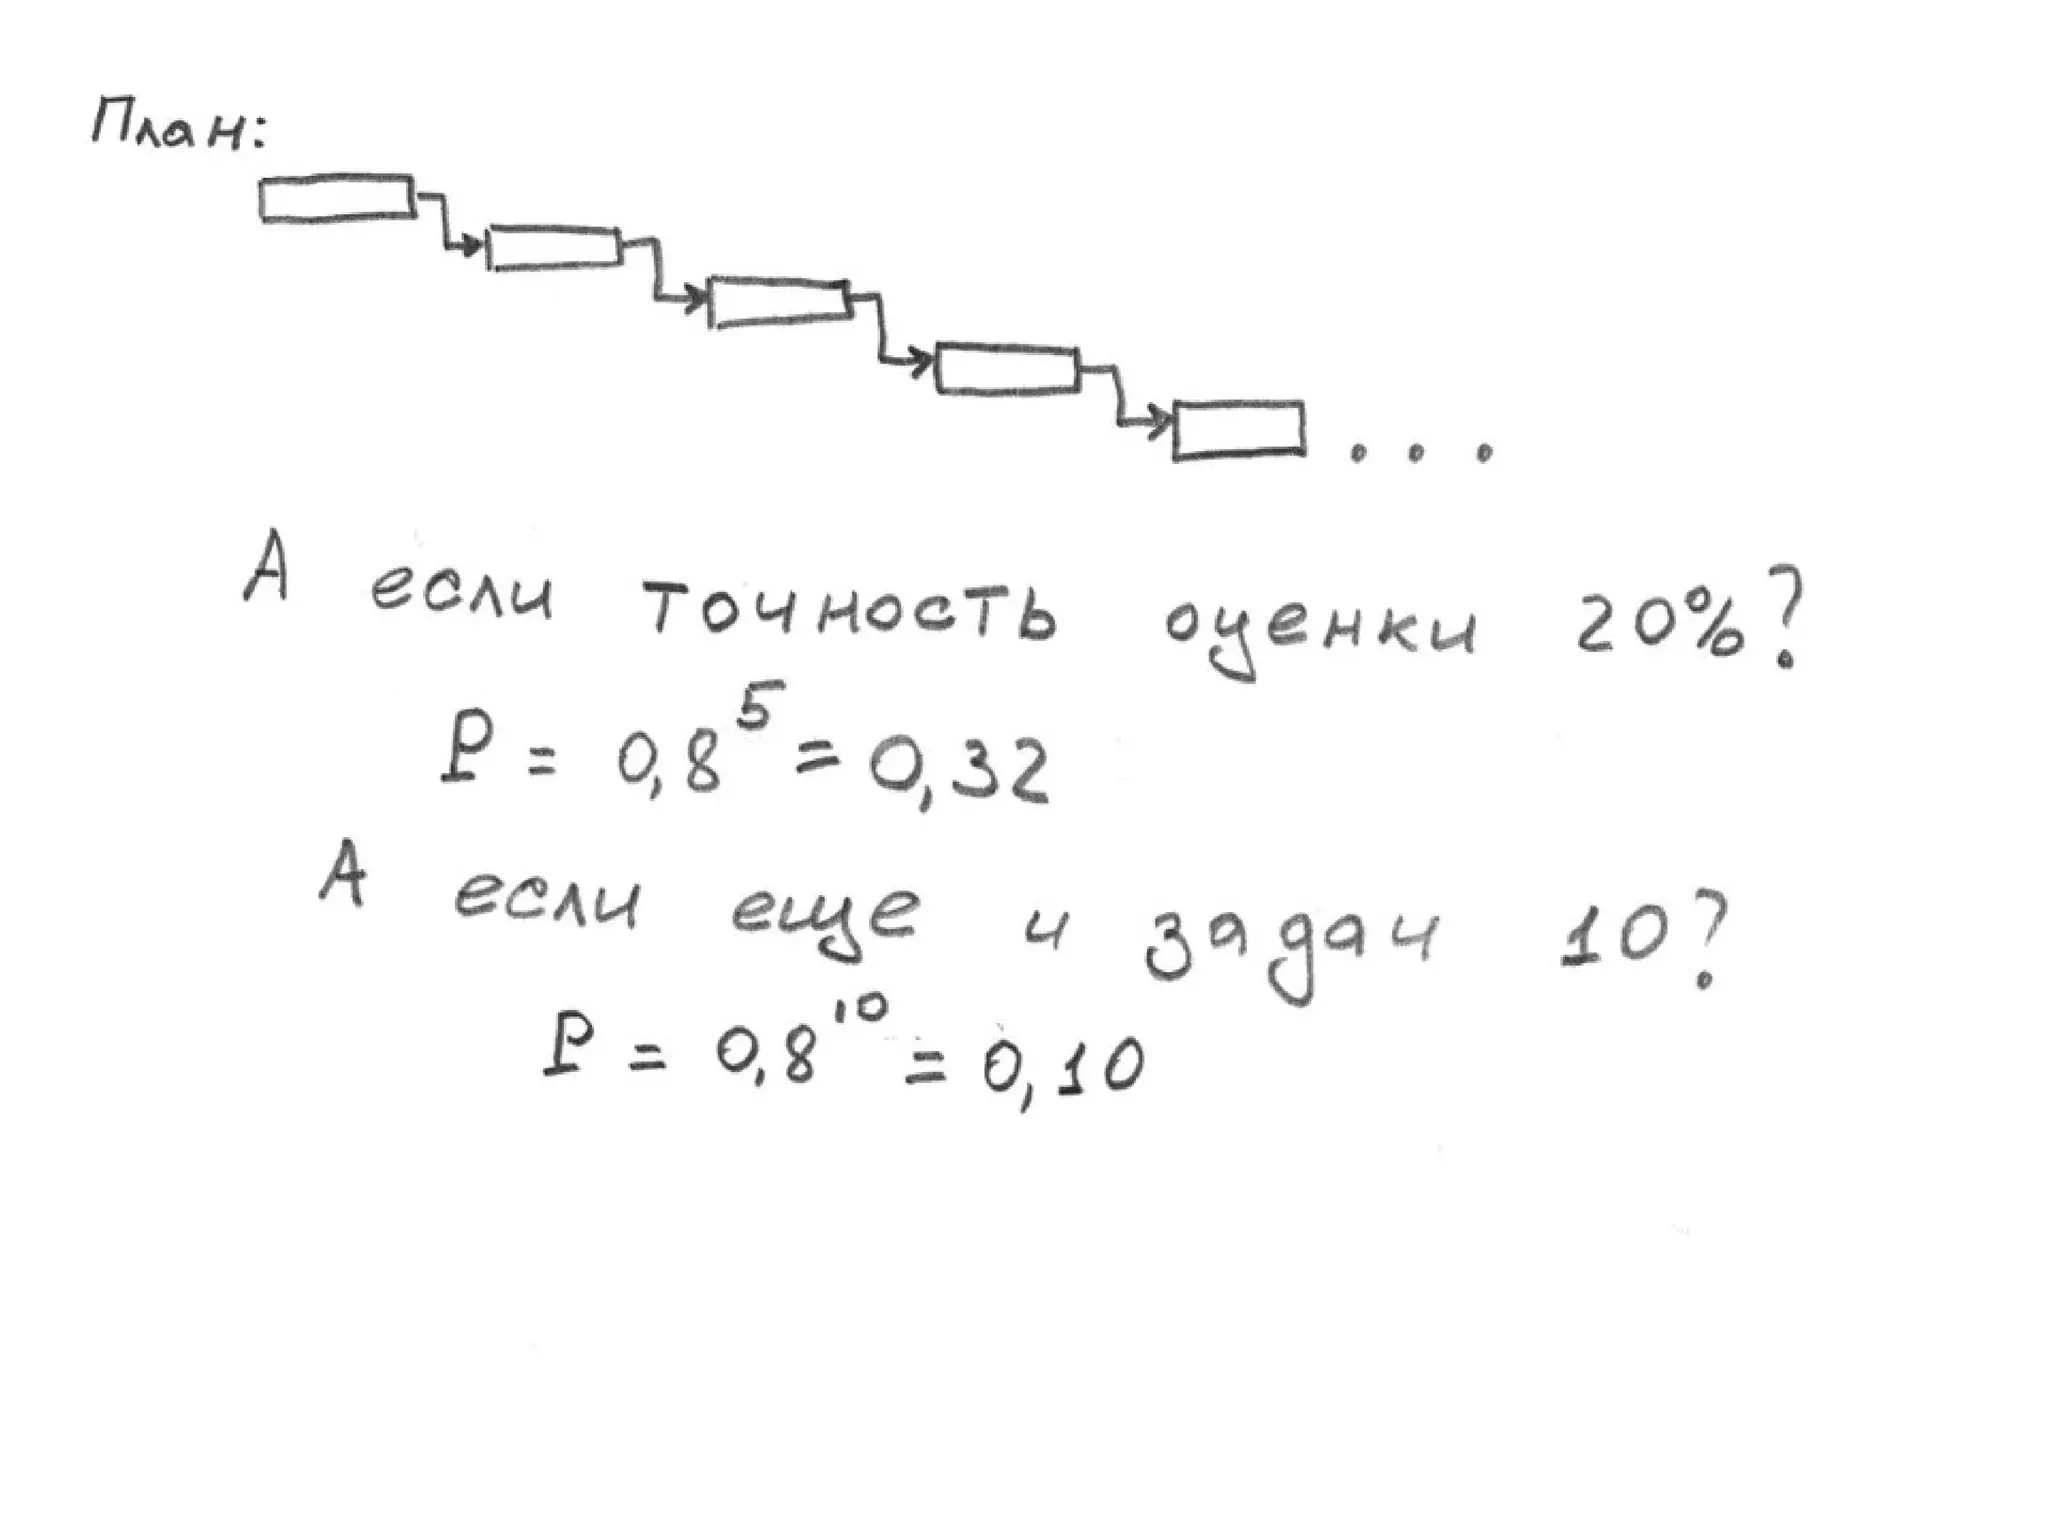 План:
...
А если точность оценки 20%?
P = 0,8⁵ = 0,32
А если еще и задач 10?
P = 0,8¹⁰ = 0,10